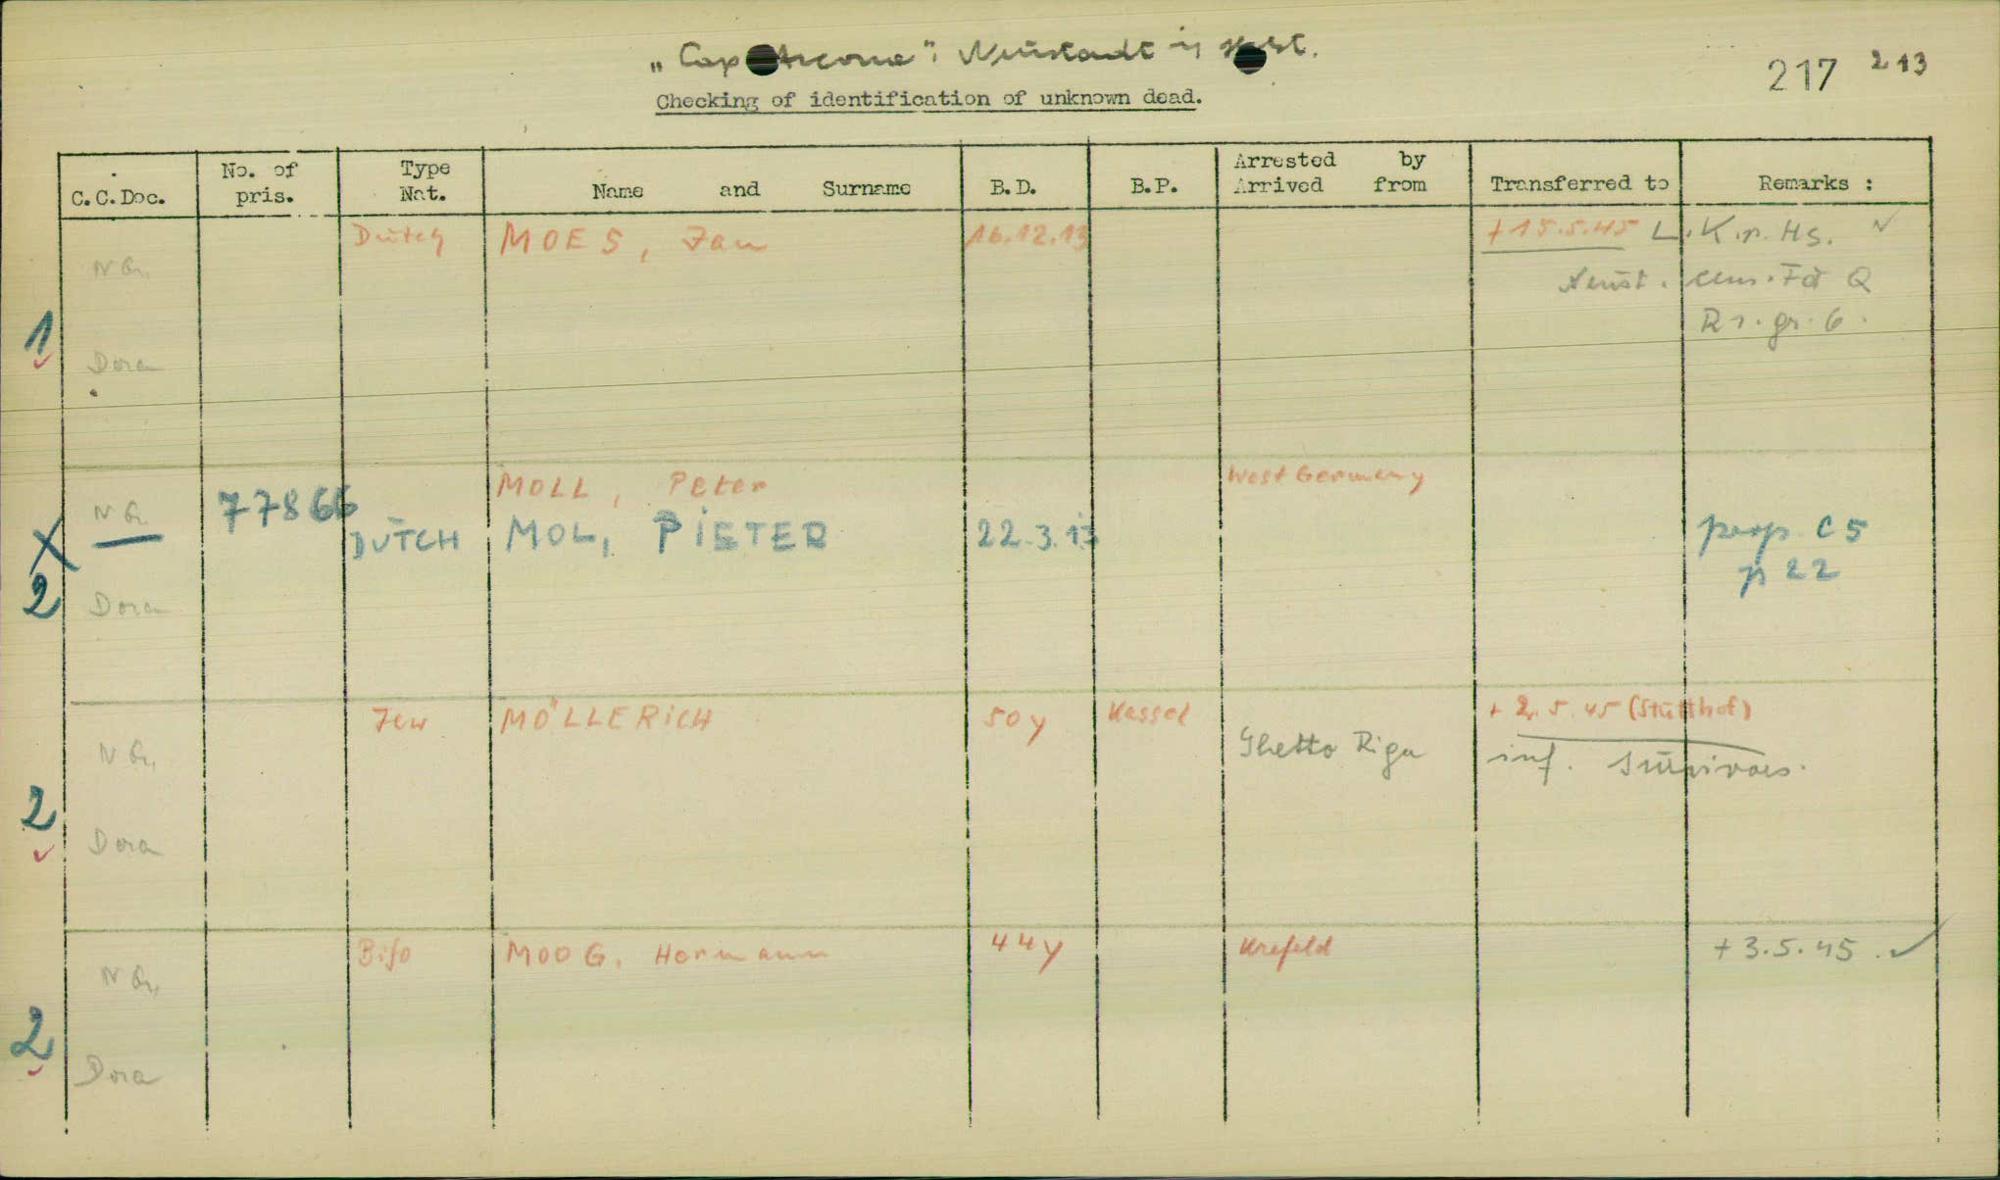 „Cap Arcona": Neustadt in Holst.
217 213
Checking of identification of unknown dead.
C.C.Doc. No. of pris. Type Nat. Name and Surname B.D. B.P. Arrested by Arrived from Transferred to Remarks :
1 Dutch MOES, Jan 16.12.13 + 15.5.45 L.K.n. Hs. ✓
N G. Neust. cem. Fd Q
R 1. gr. 6.
Dora
MOLL, Peter West Germany
X N G. 77866 DUTCH MOL, PIETER 22.3.13 p. C 5
p 22
2 Dora
Jew MÖLLERICH 50y Kassel + 2.5.45 (Stutthof)
N G. Ghetto Riga inf. survivors.
2 Dora
Bifo MOOG, Hermann 44y Krefeld + 3.5.45. ✓
N G.
2 Dora